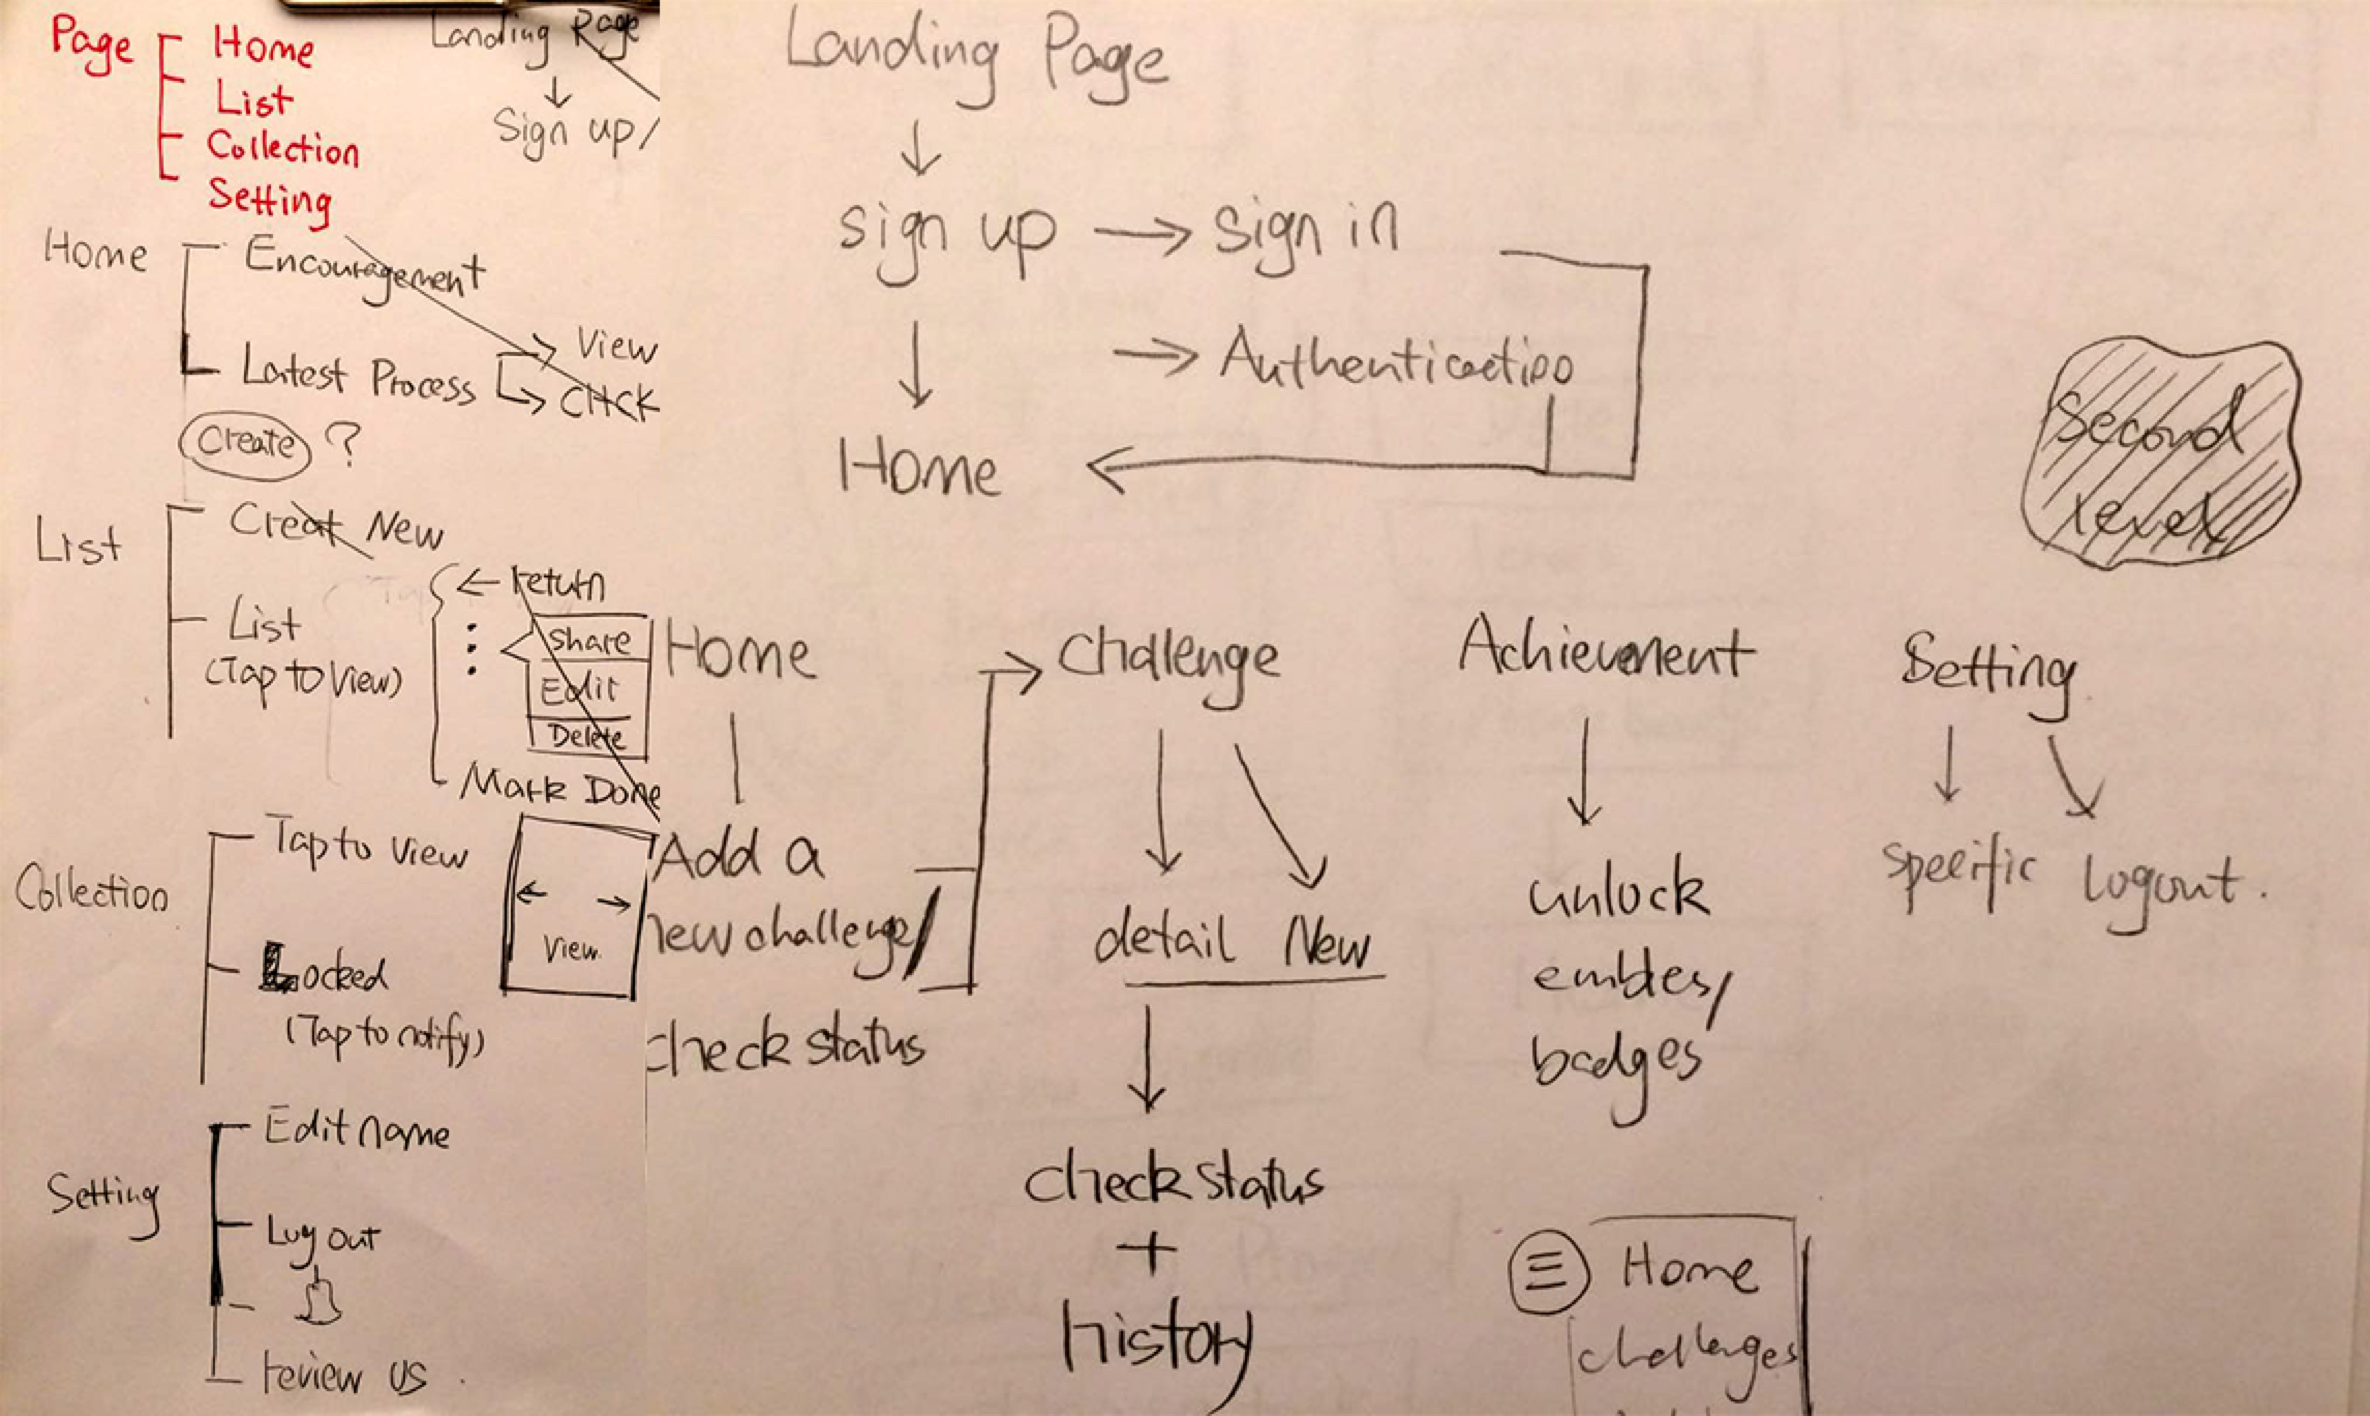 Page
Home
List
Collection
Setting
Landing Page
Sign up/
Home
Encouragement
Latest Process
View
Click
Create ?
List
Creat New
List
(Tap to View)
return
Share
Edit
Delete
Mark Done
Collection
Tap to View
View
Locked
(Tap to notify)
Setting
Edit name
Log out
review us
Landing Page
sign up
sign in
Authentication
Home
Second
level
Home
Challenge
Achievement
Setting
Add a
new challenge/
check status
detail
New
check status
+
history
unlock
embles/
badges
specific
logout.
Home
challenges